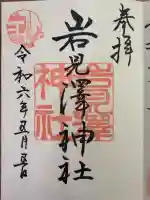 奉拝
岩見澤神社
岩見澤神社
令和六年五月五日